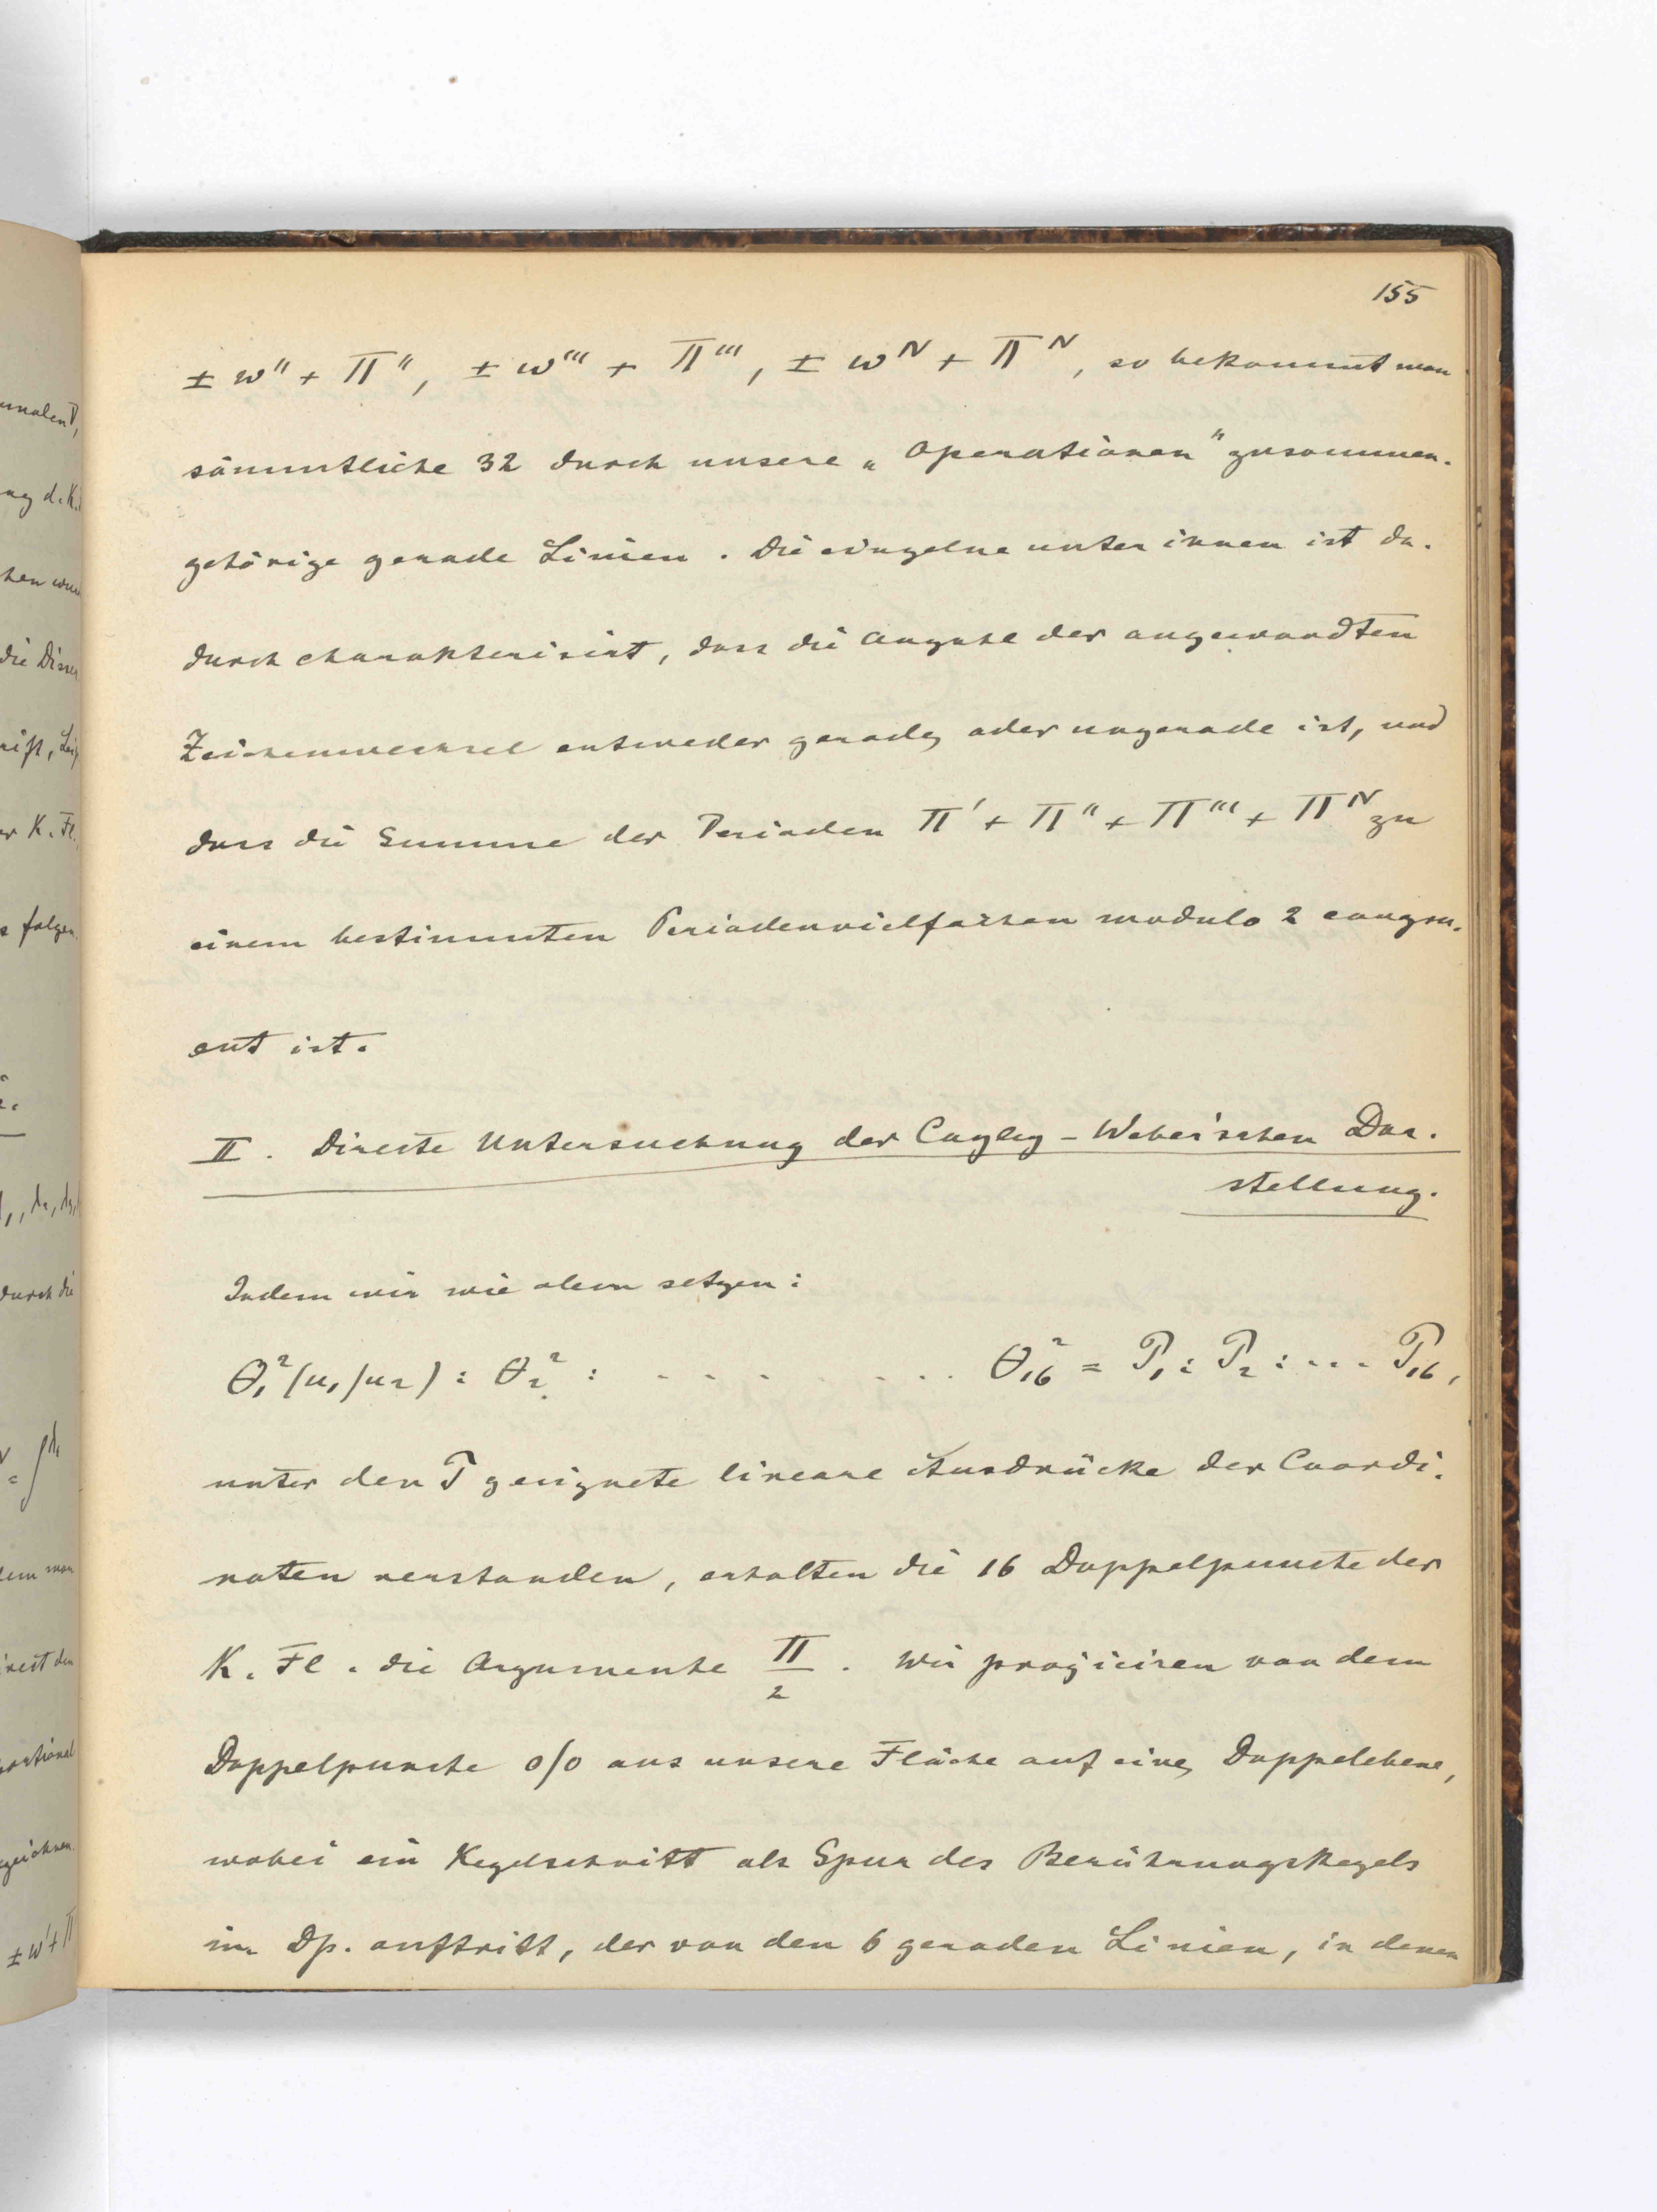 155
± w'' + Π'', ± w''' + Π''', ± w^IV + Π^IV, so bekommt man
sämmtliche 32 durch unsere „Operationen" zusammen-
gehörige gerade Linien. Die einzelne unter ihnen ist da-
durch charakterisirt, dass die Anzahl der angewandten
Zeichenwechsel entweder gerade, oder ungerade ist, und
dass die Summe der Perioden Π' + Π'' + Π''' + Π^IV zu
einem bestimmten Periodenvielfachen modulo 2 congru-
ent ist.
II. Directe Untersuchung der Cayley-Weber'schen Dar-
stellung.
Indem wir wie oben setzen:
θ₁²(u₁/u₂) : θ₂² : . . . . . . . . θ₁₆² = T₁ : T₂ : ... T₁₆,
unter den T geeignete lineare Ausdrücke der Coordi-
naten verstanden, erhalten die 16 Doppelpuncte der
K. Fl. die Argumente Π/2. Wir projiciren von dem
Doppelpuncte 0/0 aus unsere Fläche auf eine, Doppelebene,
wobei ein Kegelschnitt als Spur des Berührungskegels
im Dp. auftritt, der von den 6 geraden Linien, in denen
d. K.
die Disser
K. Fl.
folgen
durch die
± w' + Π